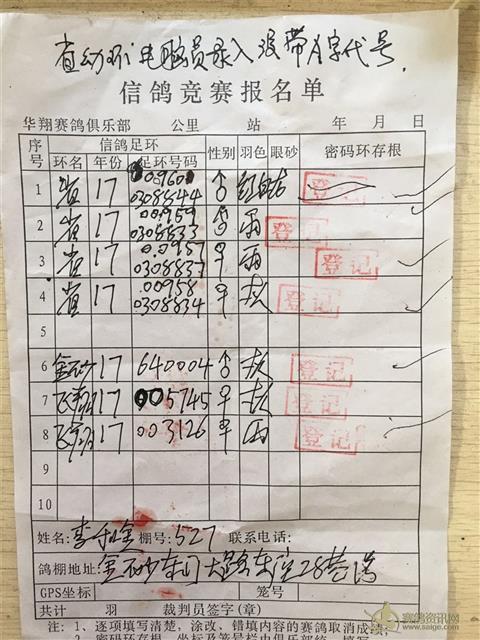 省幼环电脑员录入没带A字代号.
信鸽竞赛报名单
华翔赛鸽俱乐部 公里 站 年 月 日
序号 信鸽足环 性别 羽色 眼砂 密码环存根
环名 年份 足环号码
1 省 17 00960 0308844 ♂ 红白条 登记
2 省 17 00959 0308833 ♂ 雨 登记
3 省 17 00957 0308837 ♀ 雨 登记
4 省 17 00958 0308834 ♀ 灰 登记
5
6 金砂 17 640004 ♂ 灰 登记
7 飞翔 17 005745 ♀ 灰 登记
8 飞翔 17 003126 ♀ 雨 登记
9
10
姓名: 李 金 棚号: 527 联系电话:
鸽棚地址: 金砂东 大 东 28巷
GPS坐标 笼号
共计 羽 裁判员签字(章)
注: 1、逐项填写清楚、涂改、错填内容的赛鸽取消成绩;
赛鸽资讯网
www.saige.com